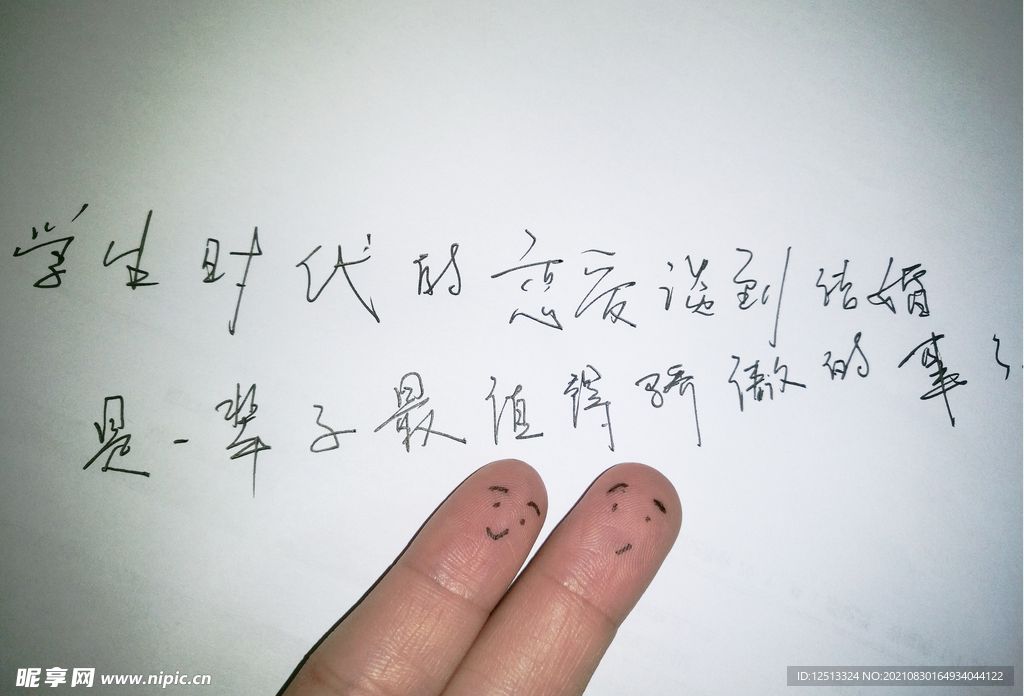 学生时代的恋爱谈到结婚
是一辈子最值得骄傲的事了
昵享网 www.nipic.cn
ID:12513324 NO:20210830164934044122